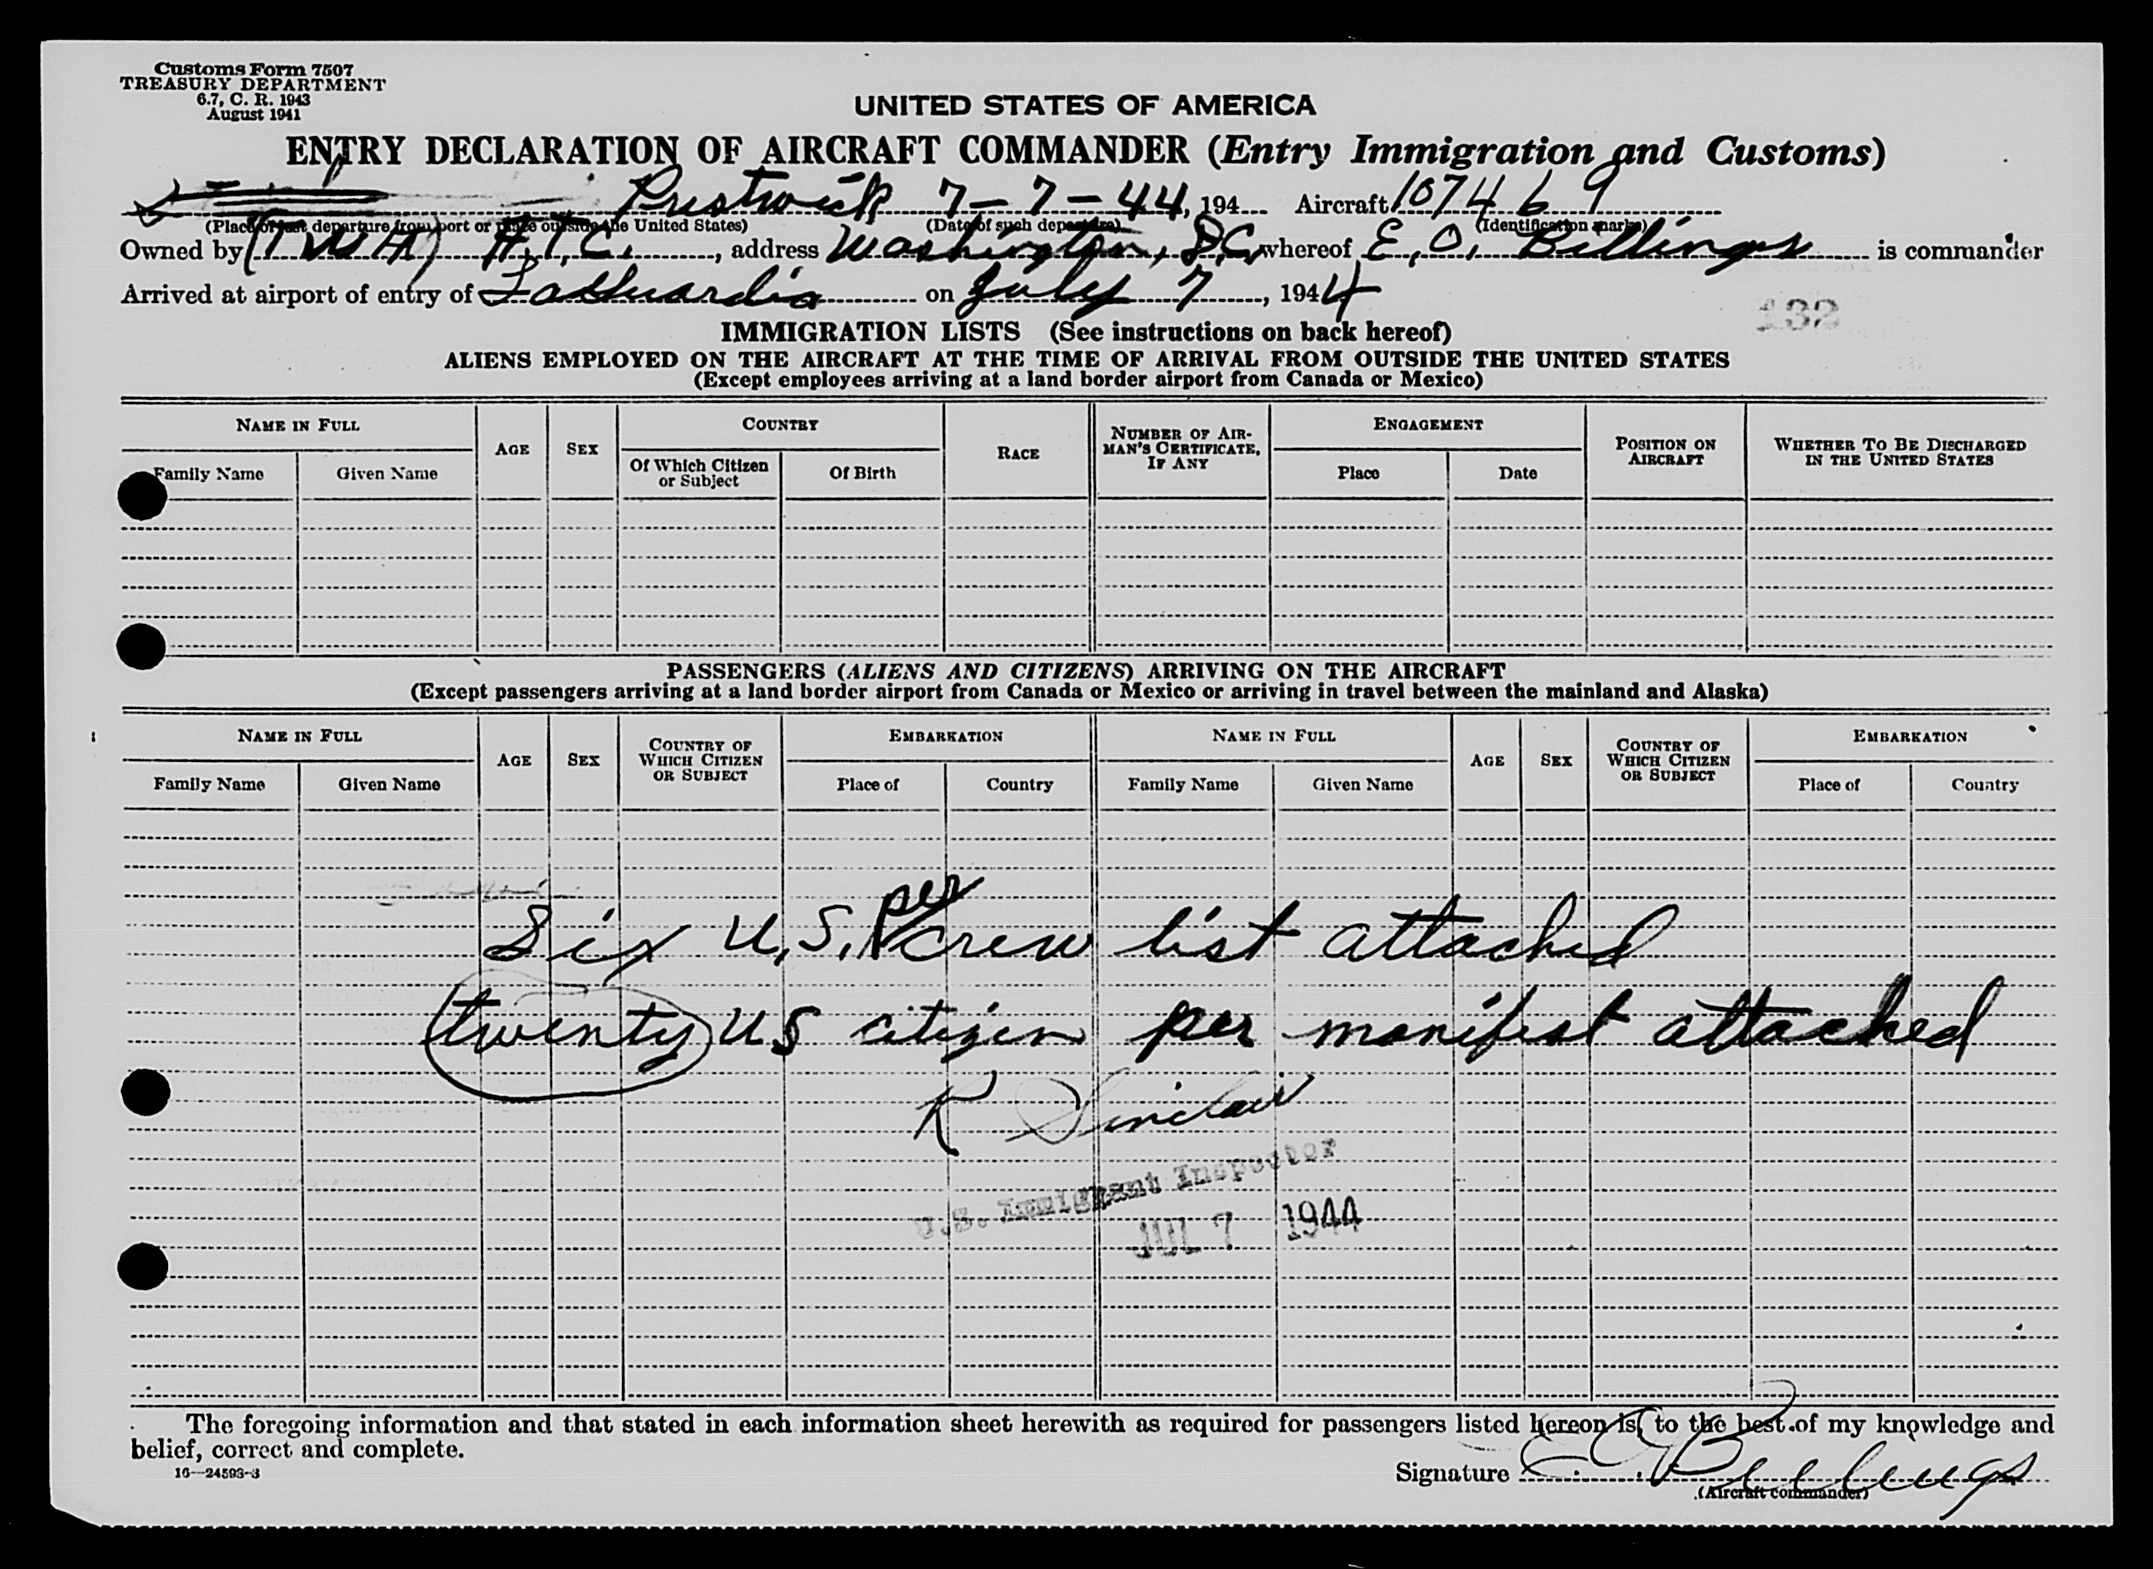 Customs Form 7507
TREASURY DEPARTMENT
6.7, C. R. 1943
August 1941
UNITED STATES OF AMERICA
ENTRY DECLARATION OF AIRCRAFT COMMANDER (Entry Immigration and Customs)
Prestwick 7-7-44, 194 Aircraft 107469
(Place of last departure from port or place outside the United States) (Date of such departure) (Identification marks)
Owned by (TWA) A.T.C. , address Washington, D.C. whereof E. O. Billings is commander
Arrived at airport of entry of LaGuardia on July 7, 1944
132
IMMIGRATION LISTS (See instructions on back hereof)
ALIENS EMPLOYED ON THE AIRCRAFT AT THE TIME OF ARRIVAL FROM OUTSIDE THE UNITED STATES
(Except employees arriving at a land border airport from Canada or Mexico)
NAME IN FULL AGE SEX COUNTRY RACE NUMBER OF AIRMAN'S CERTIFICATE, IF ANY ENGAGEMENT POSITION ON AIRCRAFT WHETHER TO BE DISCHARGED IN THE UNITED STATES
Family Name Given Name Of Which Citizen or Subject Of Birth Place Date
PASSENGERS (ALIENS AND CITIZENS) ARRIVING ON THE AIRCRAFT
(Except passengers arriving at a land border airport from Canada or Mexico or arriving in travel between the mainland and Alaska)
NAME IN FULL AGE SEX COUNTRY OF WHICH CITIZEN OR SUBJECT EMBARKATION NAME IN FULL AGE SEX COUNTRY OF WHICH CITIZEN OR SUBJECT EMBARKATION
Family Name Given Name Place of Country Family Name Given Name Place of Country
per
Six U.S. crew list attached
twenty US citizen per manifest attached
R Sinclair
U.S. Immigrant Inspector
JUL 7 1944
The foregoing information and that stated in each information sheet herewith as required for passengers listed hereon is, to the best of my knowledge and
belief, correct and complete.
16—24593-3
Signature E. O. Billings
(Aircraft commander)